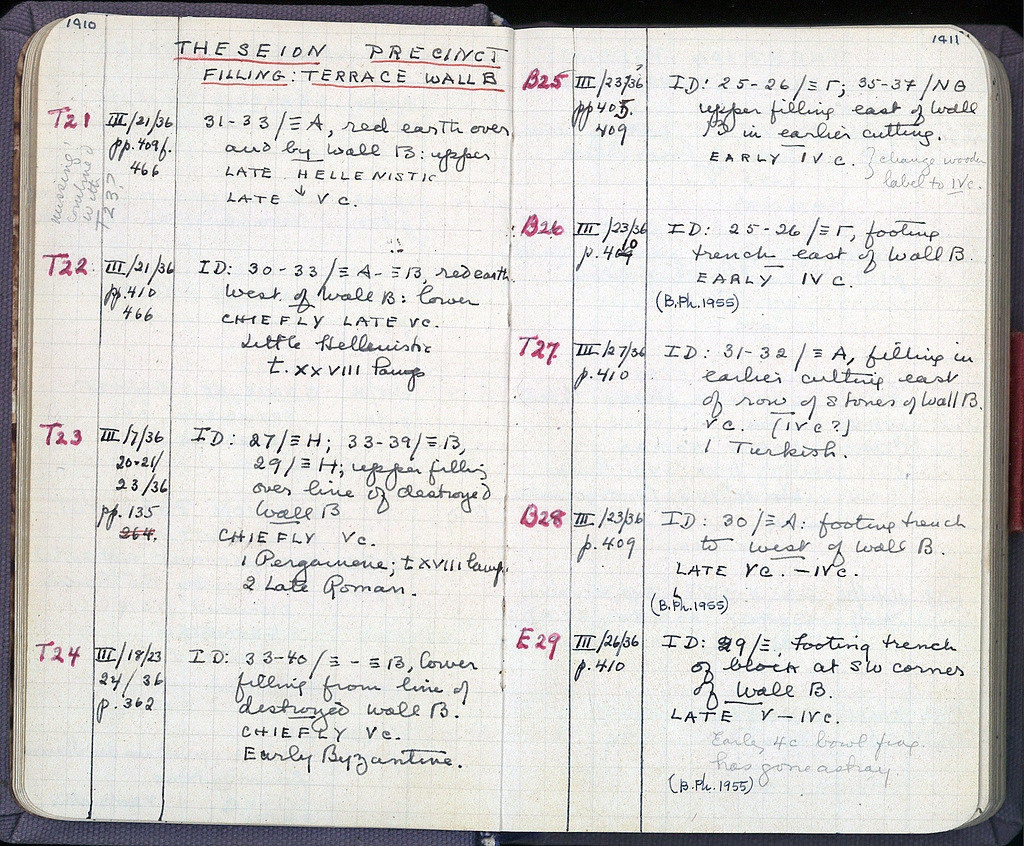 1410
THESEION PRECINCT
FILLING: TERRACE WALL B
T21
III/21/36
pp. 409f.
466
missing!
combined
with
T23?
31-33/Ξ A, red earth over
and by wall B: upper
LATE HELLENISTIC
LATE V C.
T22
III/21/36
pp. 410
466
ID: 30-33/Ξ A-ΞB, red earth
west of wall B: lower
CHIEFLY LATE VC.
Little Hellenistic
t. XXVIII lamps
T23
III/7/36
20-21/
23/36
pp. 135
264.
ID: 27/Ξ H; 33-39/Ξ B,
29/Ξ H; upper filling
over line of destroyed
wall B
CHIEFLY VC.
1 Pergamene; t XVIII lamp.
2 Late Roman.
T24
III/18/23
24/36
p. 362
ID: 33-40/Ξ-ΞB, lower
filling from line of
destroyed wall B.
CHIEFLY VC.
Early Byzantine.
1411
B25
III/23?/36
pp 405.
409
ID: 25-26/Ξ Γ; 35-37/NΘ
upper filling east of wall
B in earlier cutting.
EARLY IV C.
change wooden
label to IVc.
B26
III/23/36
p. 410
ID: 25-26/Ξ Γ, footing
trench east of wall B.
EARLY IV C.
(B.Ph. 1955)
T27
III/27/36
p. 410
ID: 31-32/Ξ A, filling in
earlier cutting east
of row of stones of wall B.
VC. [IVc?]
1 Turkish.
B28
III/23/36
p. 409
ID: 30/Ξ A: footing trench
to west of wall B.
LATE VC. -IVC.
(B.Ph. 1955)
E29
III/26/36
p. 410
ID: 29/Ξ, footing trench
of block at SW corner
of wall B.
LATE V-IVC.
Early 4c bowl frag.
has gone astray.
(B.Ph. 1955)